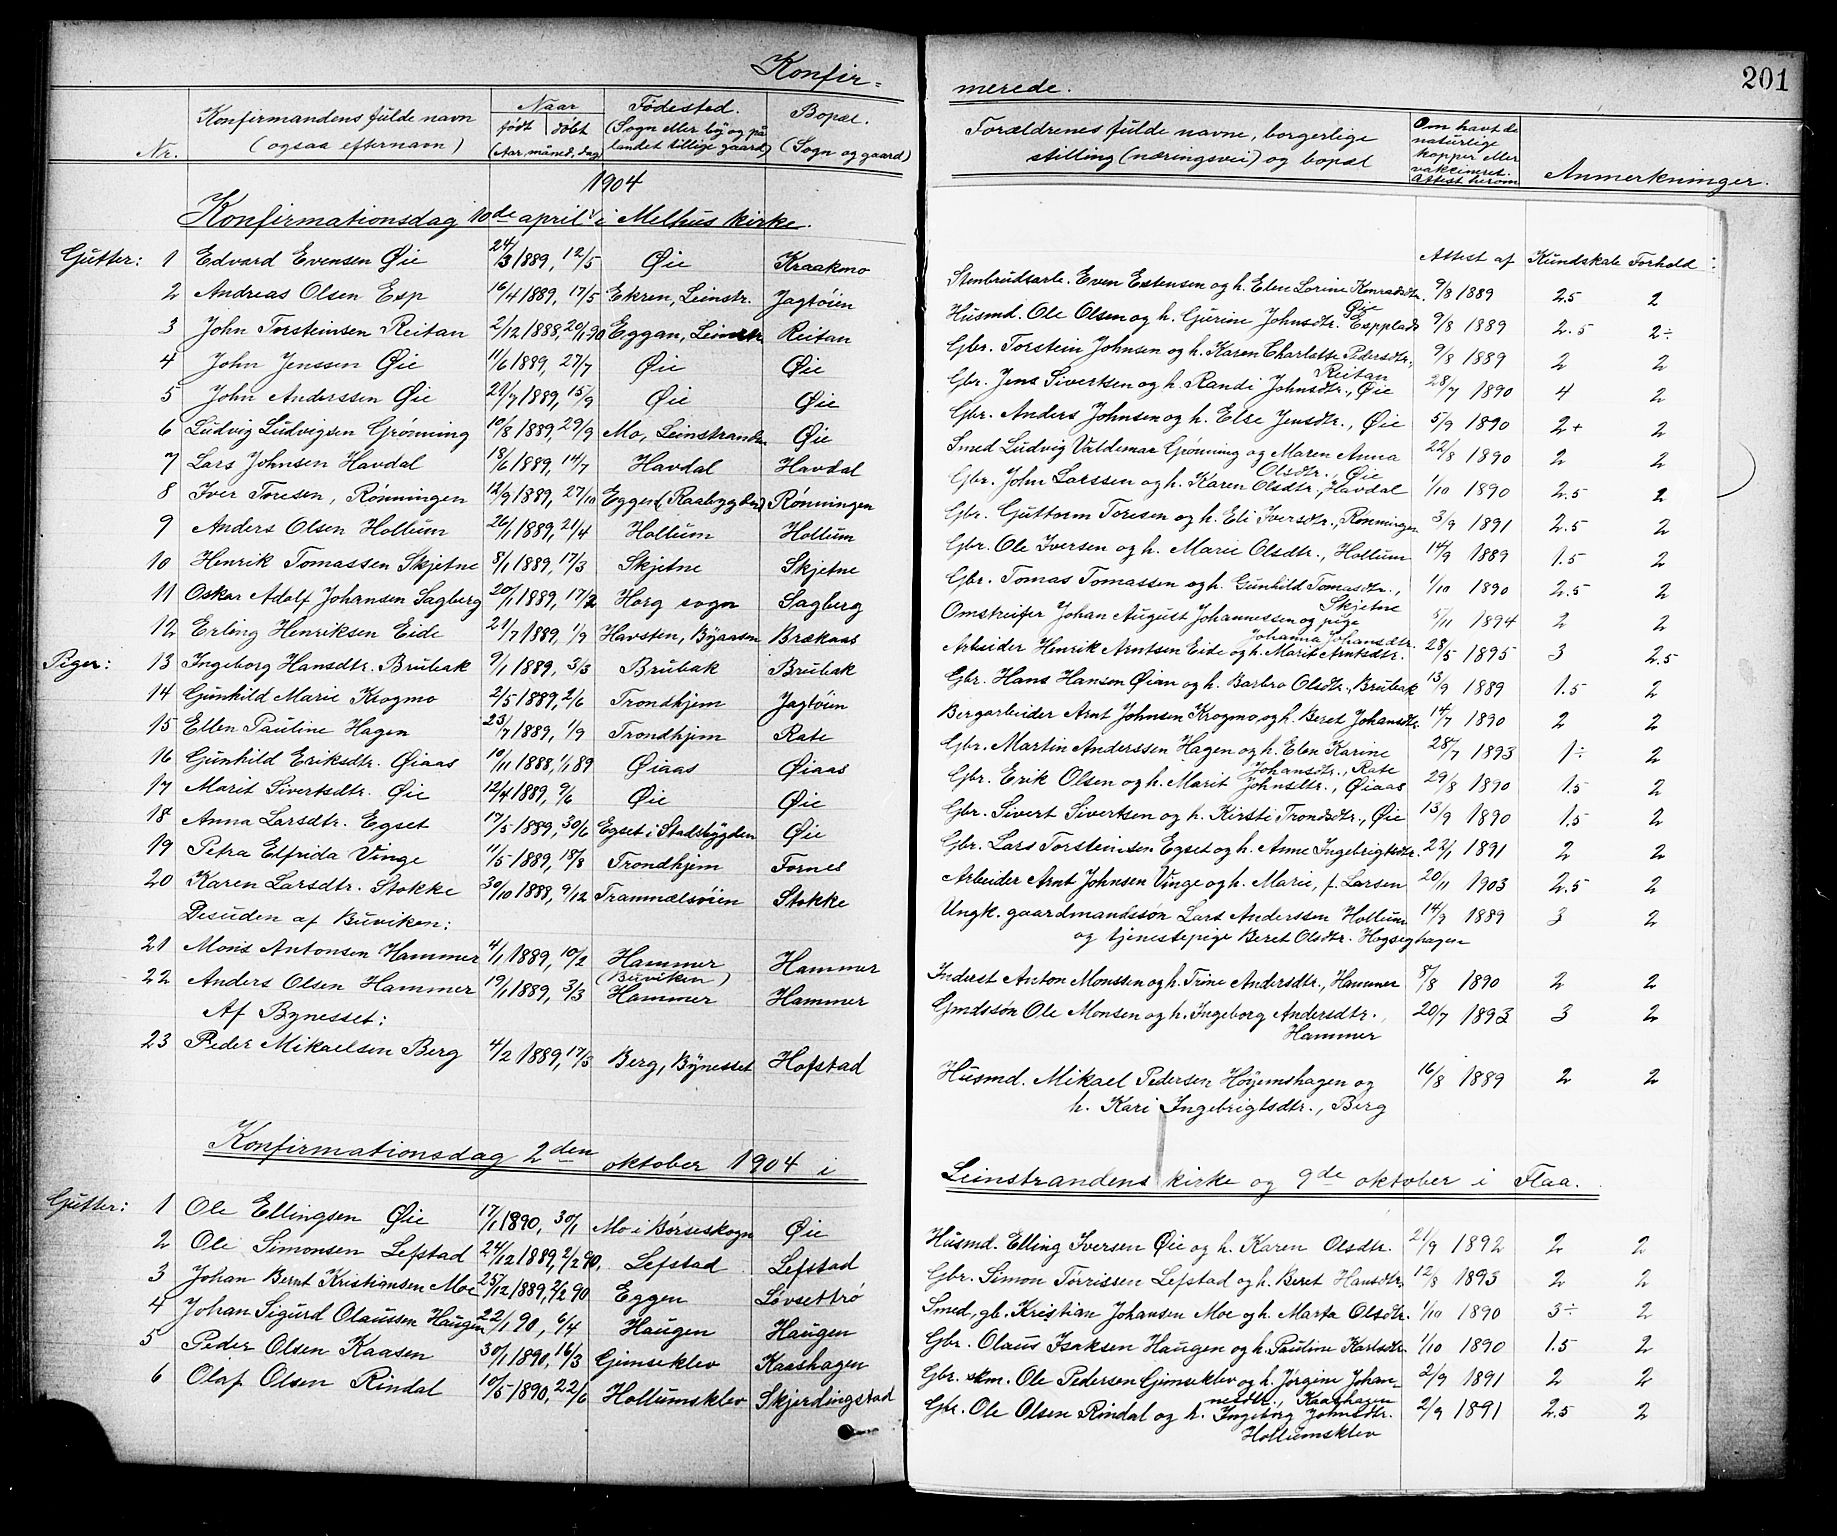 Konfir-
Nr.
Konfirmandens fulde navn
(ogsaa efternavn)
Naar
født | døbt
(Aar, måned, dag)
Fødested.
(Sogn eller by og på
landet tillige gaard)
Bopæl.
(Sogn og gaard)
1904
Konfirmationsdag 10de april i Melhus kirke.
Gutter: 1 Edvard Evensen Øie 24/3 1889, 12/5 Øie Kraakmo
2 Andreas Olsen Esp 16/4 1889, 17/5 Ekren, Leinstr. Jagtøien
3 John Torsteinsen Reitan 2/12 1888, 20/1 90 Eggan, Leinstr. Reitan
4 John Jenssen Øie 11/6 1889, 27/7 Øie Øie
5 John Anderssen Øie 29/7 1889, 15/9 Øie Øie
6 Ludvig Ludvigsen Grønning 10/8 1889, 29/9 Mo, Leinstranden Øie
7 Lars Johnsen Havdal 18/6 1889, 14/7 Havdal Havdal
8 Iver Toresen, Rønningen 12/9 1889, 27/10 Eggen (Raabygden) Rønningen
9 Anders Olsen Hollum 26/1 1889, 21/4 Hollum Hollum
10 Henrik Tomassen Skjetne 8/1 1889, 17/3 Skjetne Skjetne
11 Oskar Adolf Johansen Sagberg 20/1 1889, 17/2 Horg sogn Sagberg
12 Erling Henriksen Eide 21/7 1889, 1/9 Havsten, Byaasen Brækaas
Piger: 13 Ingeborg Hansdtr. Brubak 9/1 1889, 3/3 Brubak Brubak
14 Gunhild Marie Krogmo 2/5 1889, 2/6 Trondhjem Jagtøien
15 Ellen Pauline Hagen 23/7 1889, 1/9 Trondhjem Rate
16 Gunhild Eriksdtr. Øiaas 10/11 1888, 1/1 89 Øiaas Øiaas
17 Marit Sivertsdtr. Øie 12/4 1889, 9/6 Øie Øie
18 Anna Larsdtr. Egset 17/5 1889, 30/6 Egset i Stadsbygden Øie
19 Petra Elfrida Vinge 11/5 1889, 18/8 Trondhjem Fornes
20 Karen Larsdtr. Stokke 30/10 1888, 9/12 Trammælsøien Stokke
Desuden af Buviken:
21 Mons Antonsen Hammer 4/1 1889, 10/2 Hammer Hammer
(Buviken)
22 Anders Olsen Hammer 19/1 1889, 3/3 Hammer Hammer
Af Bynesset:
23 Peder Mikaelsen Berg 4/2 1889, 17/3 Berg, Bynesset Hofstad
Konfirmationsdag 2den oktober 1904 i
Gutter: 1 Ole Ellingsen Øie 17/1 1890, 30/1 Mo i Børseskogn Øie
2 Ole Simonsen Lefstad 24/12 1889, 2/2 90, Lefstad Lefstad
3 Johan Bernt Kristiansen Moe 25/12 1889, 2/2 90 Eggen Løvsettrø
4 Johan Sigurd Olaussen Haugen 22/1 90, 6/4 Haugen Haugen
5 Peder Olsen Kaasen 30/1 1890, 16/3 Gimseklev Kaashagen
6 Olaf Olsen Rindal 10/5 1890, 22/6 Hollumsklev Skjerdingstad
merede.
201
Forældrenes fulde navne, borgerlige
stilling (næringsvei) og bopæl
Om havt de
naturlige
kopper eller
vakcineret.
Attest herom
Anmerkninger.
Attest af Kundskab Forhold:
Stenbrudsarb. Even Estensen og h. Elen Lorine Konradsdtr. 9/8 1889 2.5 2
Øie
Husmd. Ole Olsen og h. Gurine Johnsdtr. Espplads 9/8 1889 2.5 2÷
Gbr. Torstein Johnsen og h. Karen Charlotte Pedersdtr., 9/8 1889 2 2
Reitan
Gbr. Jens Sivertsen og h. Randi Johnsdtr., Øie 28/7 1890 4 2
Gbr. Anders Johnsen og h. Else Jensdtr., Øie 5/9 1890 2+ 2
Smed Ludvig Valdemar Grønning og Maren Anna 22/8 1890 2 2
Olsdtr., Øie
Gbr. John Larssen og h. Karen Olsdtr., Havdal 1/10 1890 2.5 2
Gbr. Guttorm Toresen og h. Eli Iversdtr., Rønningen 3/9 1891 2.5 2
Gbr. Ole Iversen og h. Marie Olsdtr., Hollum 14/9 1889 1.5 2
Gbr. Tomas Tomassen og h. Gunhild Tomasdtr., 1/10 1890 2.5 2
Skjetne
Omstreifer Johan August Johannessen og pige 5/11 1894 2 2
Johanna Johansdtr.
Arbeider Henrik Arntsen Eide og h. Marit Arntsdtr. 28/5 1895 3 2.5
Gbr. Hans Hansen Øian og h. Barbro Olsdtr., Brubak 13/9 1889 1.5 2
Bergarbeider Arnt Johnsen Krogmo og h. Beret Johansdtr. 14/7 1890 2 2
Gbr. Martin Anderssen Hagen og h. Elen Karine 28/7 1893 1÷ 2
Johansdtr., Rate
Gbr. Erik Olsen og h. Marit Johnsdtr., Øiaas 29/8 1890 1.5 2
Gbr. Sivert Sivertsen og h. Kirsti Trondsdtr., Øie 13/9 1890 1.5 2
Gbr. Lars Torsteinsen Egset og h. Anne Ingebrigtsdtr. 22/1 1891 2 2
Arbeider Arnt Johnsen Vinge og h. Marie, f. Larsen 20/11 1903 2.5 2
Ungk. gaardmandssøn Lars Anderssen Hollum 14/9 1889 3 2
og tjenestepige Beret Olsdtr. Hogseghagen
Inderst Anton Monssen og h. Trine Andersdtr., Hammer 8/8 1890 2 2
Gmdssøn Ole Monsen og h. Ingeborg Andersdtr., 20/7 1893 3 2
Hammer
Husmd. Mikael Pedersen Høyemshagen og 16/8 1889 2 2
h. Kari Ingebrigtsdtr., Berg
Leinstrandens kirke og 9de oktober i Flaa.
Husmd. Elling Iversen Øie og h. Karen Olsdtr. 21/9 1892 2 2
Gbr. Simon Torrissen Lefstad og h. Beret Hansdtr. 12/8 1893 2 2
Smed, gb. Kristian Johansen Moe og h. Marta Olsdtr. 1/10 1890 3÷ 2
Gbr. Olaus Isaksen Haugen og h. Pauline Karlsdtr. 1/10 1890 1.5 2
Gbr. skm. Ole Pedersen Gimseklev og h. Jørgine Johan- 2/9 1891 2 2
nesdtr., Kaashagen
Gbr. Ole Olsen Rindal og h. Ingeborg Johnsdtr. 2/9 1891 2.5 2
Hollumsklev